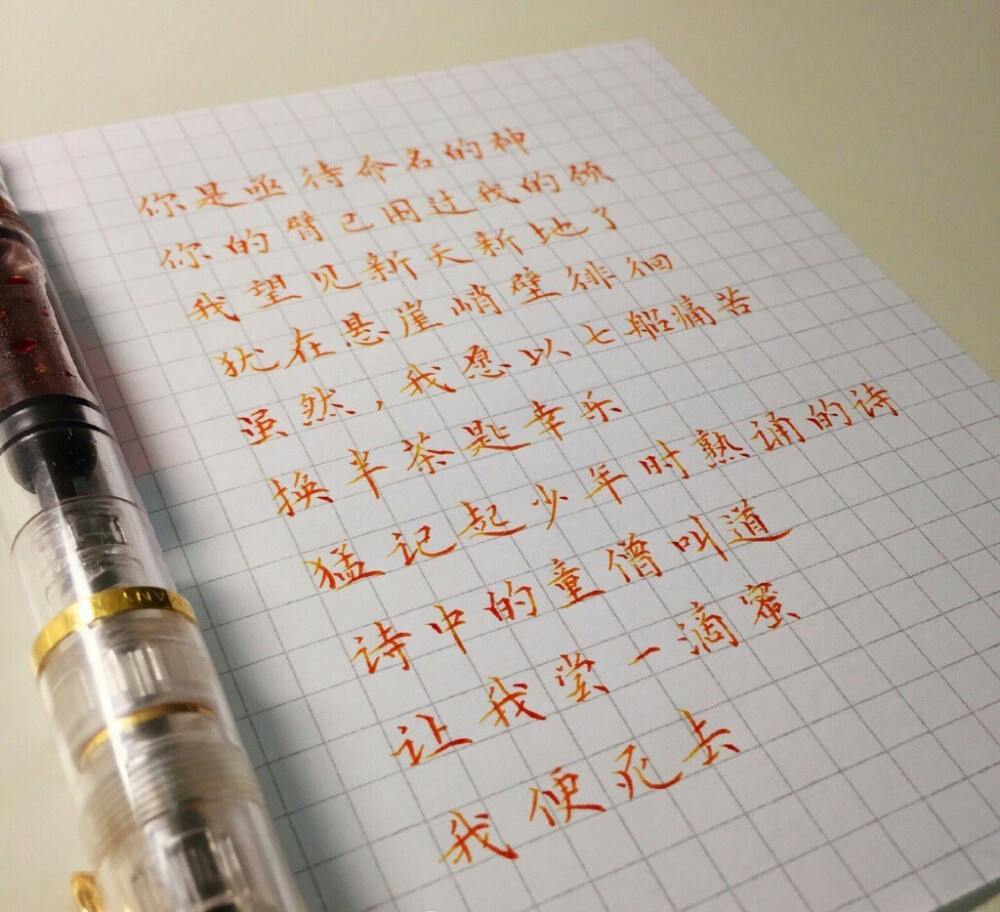 你是亟待命名的神
你的臂已围过我的颈
我望见新天新地了
犹在悬崖峭壁徘徊
虽然,我愿以七船痛苦
换半茶匙幸乐
猛记起少年时熟诵的诗
诗中的童僧叫道
让我尝一滴蜜
我便死去